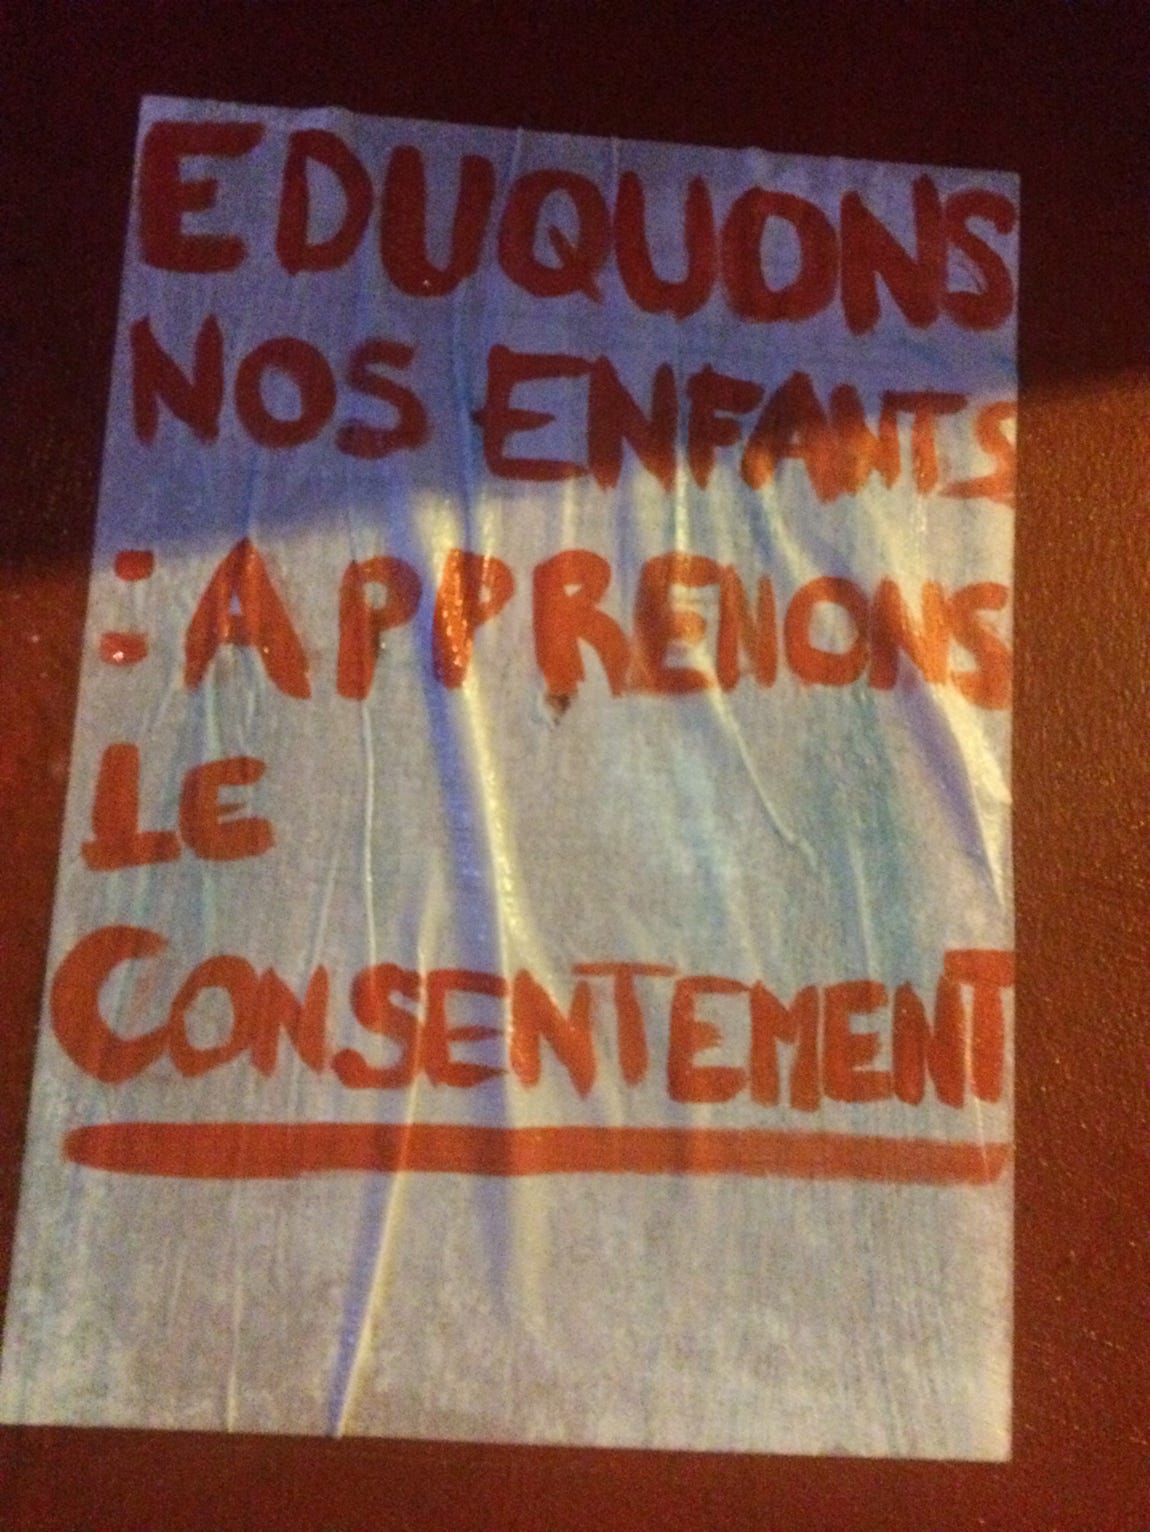 EDUQUONS
NOS ENFANTS
: APPRENONS
LE
CONSENTEMENT